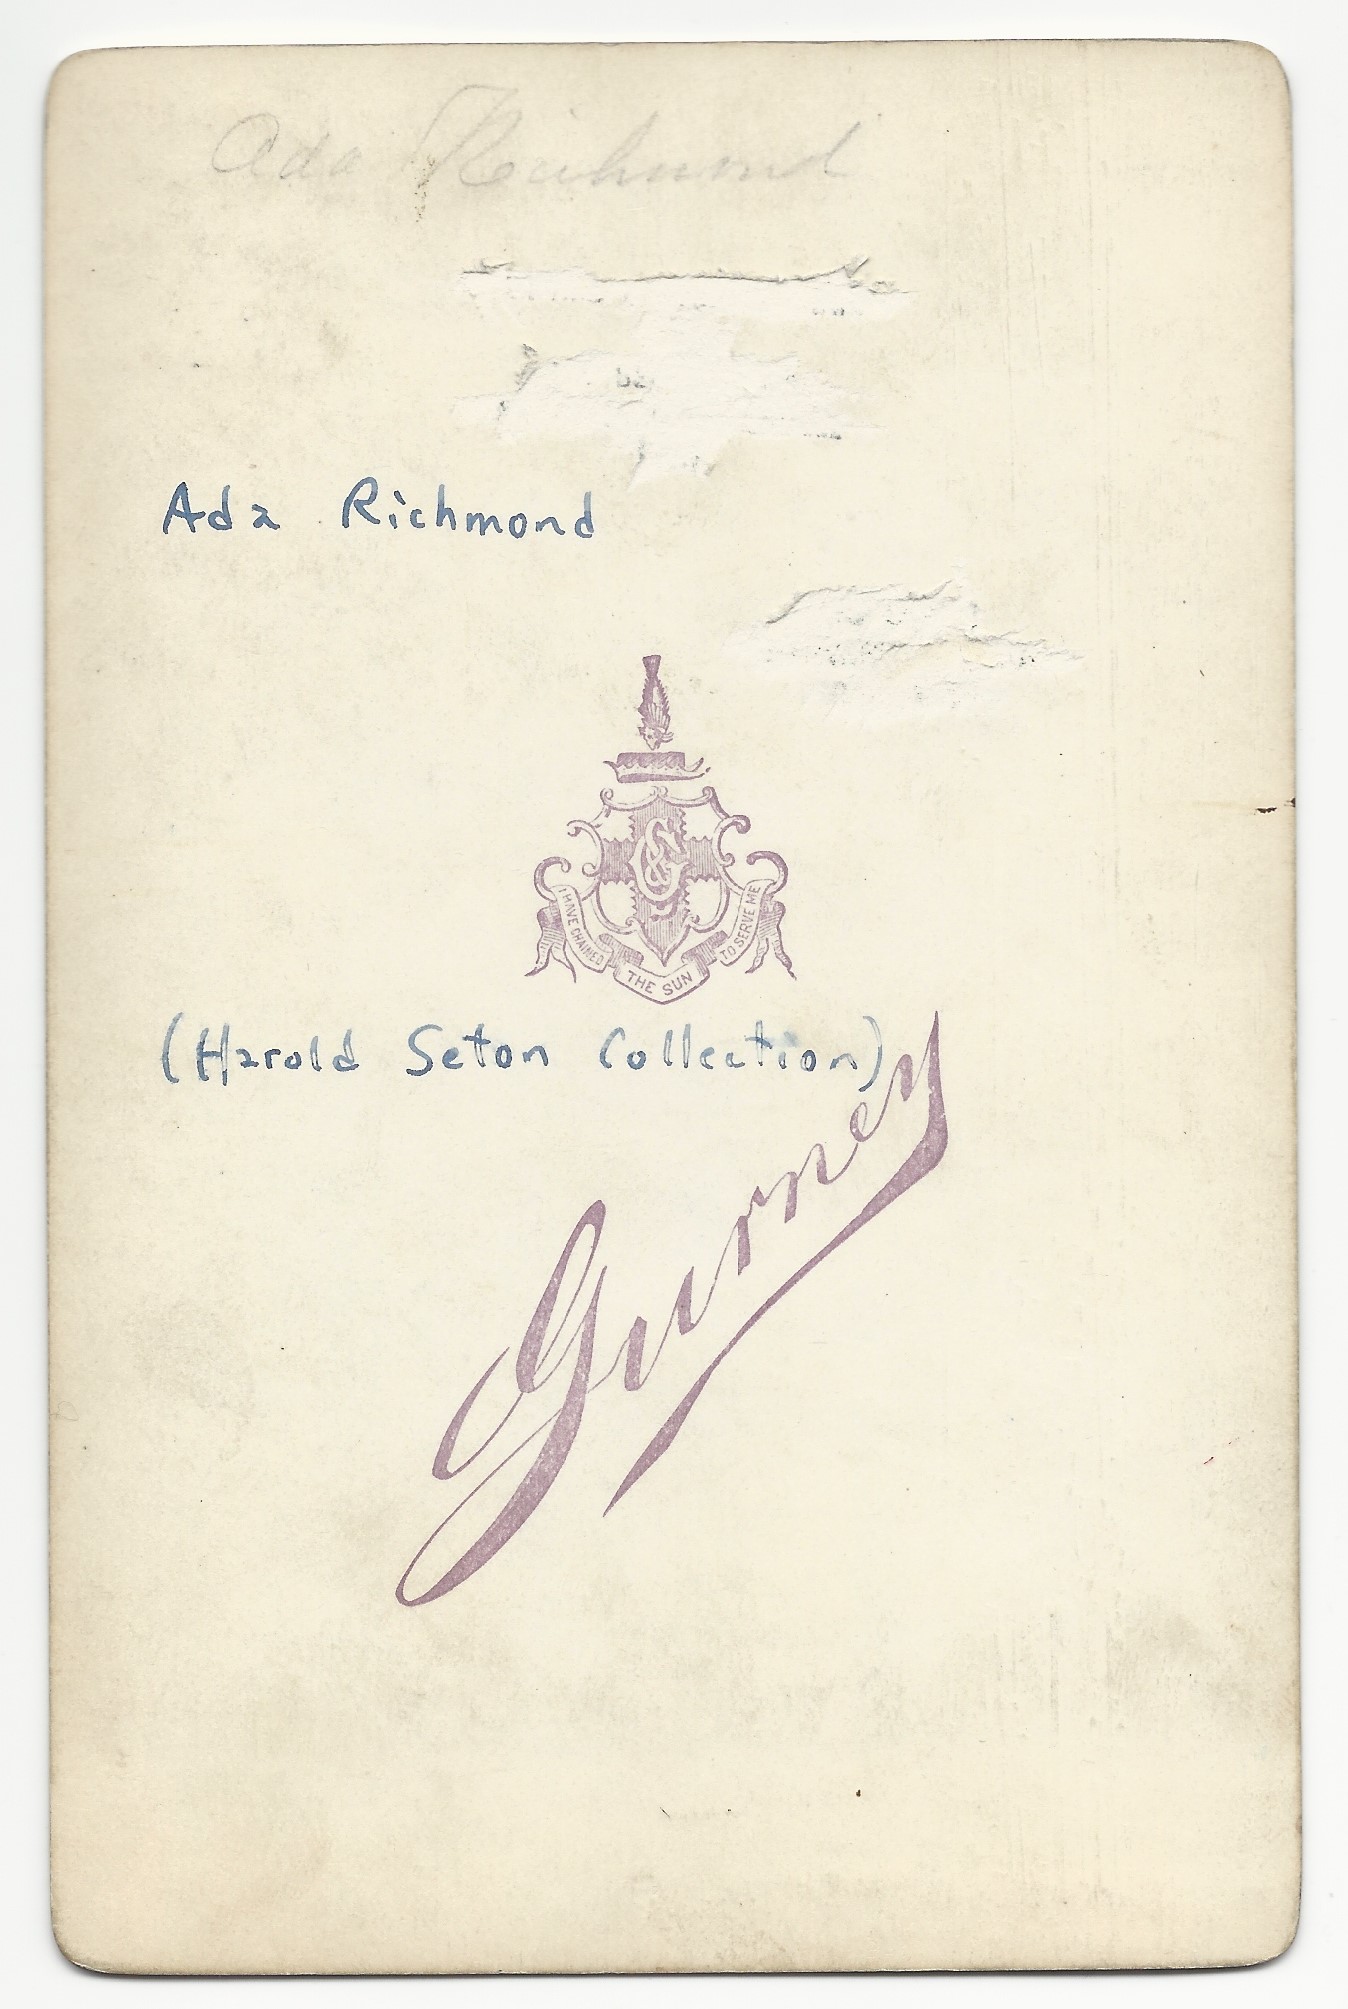 Ada Richmond
Ada Richmond
G&S
I HAVE CHAINED THE SUN TO SERVE ME
(Harold Seton Collection)
Gurney